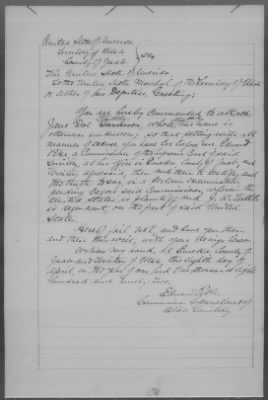 United States of America
Territory of Utah } SS.
County of Juab
The United States of America
To the United States Marshal of the Territory of Utah
or either of his Deputies, Greeting:
You are hereby commanded to attach
Jane Doe whose name is
otherwise unknown; so that setting aside all
manner of excuse you have her before me Edward
Pike, a Commissioner of the Supreme Court of said
Territory, at his office in Eureka County of Juab, and
Territory aforesaid, then and there to testify, and
the truth to say, in a
pending before said Commissioner, wherein the
United States is plaintiff and
is defendant, on the part of said United
States.
Hereof fail not, and have you then
and there this writ, with your doings
Witness my hand, at Eureka, County of
Juab and Territory of Utah, this eighth day of
April, in the year of our Lord One thousand eight
hundred and ninety two.
Edward Pike
Commissioner Supreme Court of
Utah Territory